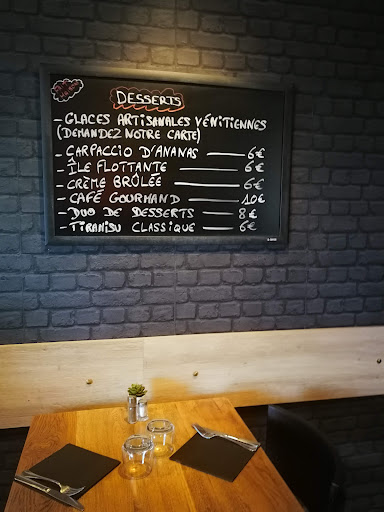 DESSERTS
- GLACES ARTISANALES VÉNITIENNES
(DEMANDEZ NOTRE CARTE)
- CARPACCIO D'ANANAS — 6€
- ÎLE FLOTTANTE — 6€
- CRÈME BRÛLÉE — 6€
- CAFÉ GOURMAND — 10€
- DUO DE DESSERTS — 8€
- TIRAMISU CLASSIQUE — 6€